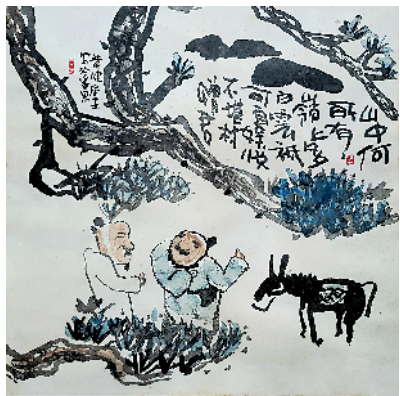 山中何
所有
嶺上多
白雲祇
可自怡悦
不堪持
贈君